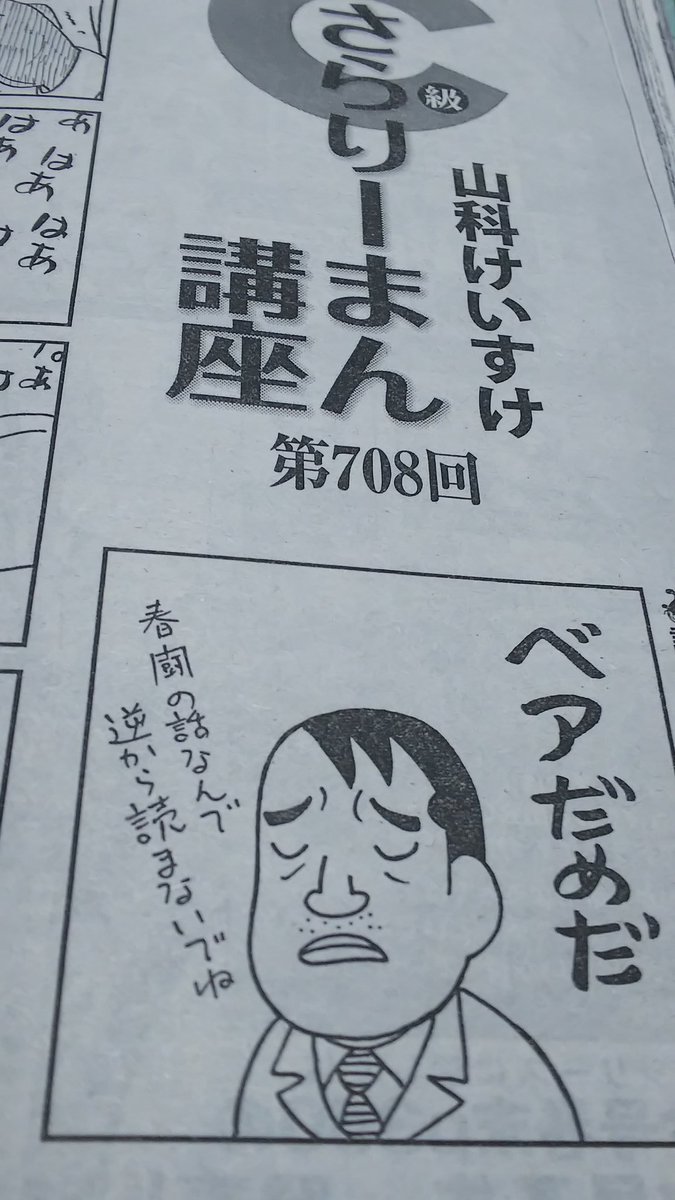 C級
さらりーまん
講座
山科けいすけ
第708回
ベアだめだ
春闘の話なんで
逆から読まないでね
あ
はあ
はあ
はあ
はあ